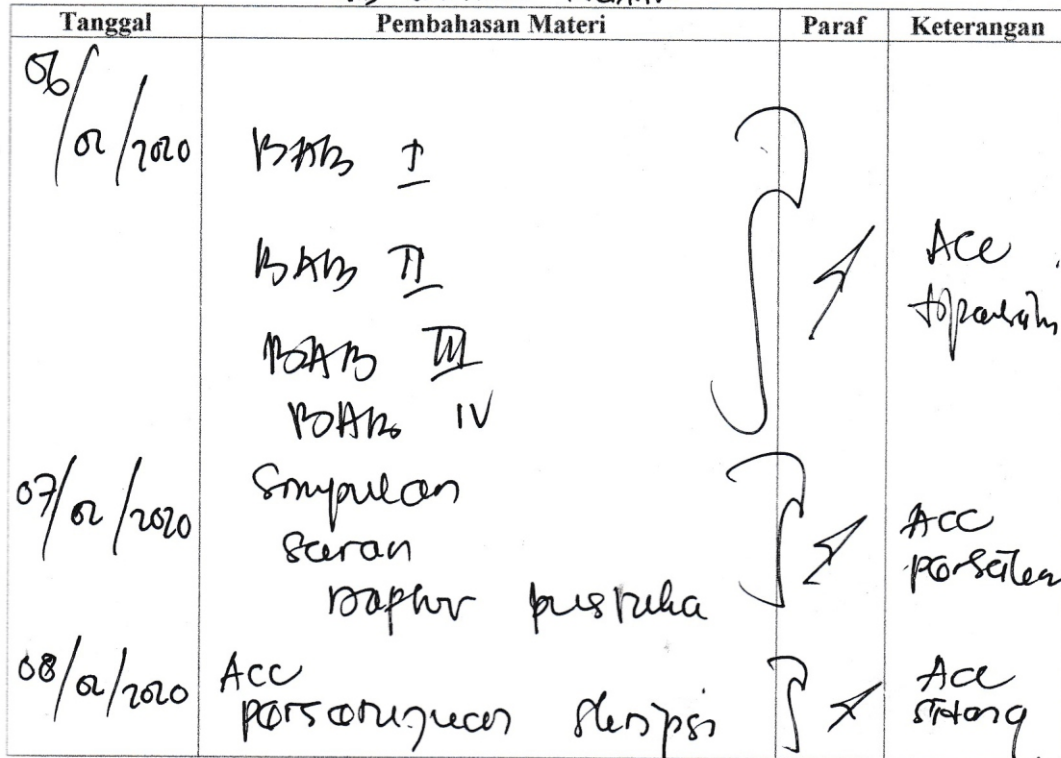 Tanggal Pembahasan Materi Paraf Keterangan
06/02/2020
BAB I
BAB II
BAB III
BAB IV
ACC
07/02/2020
Simpulan
Saran
Daftar pustaka
ACC
08/02/2020
ACC
skripsi
ACC
sidang